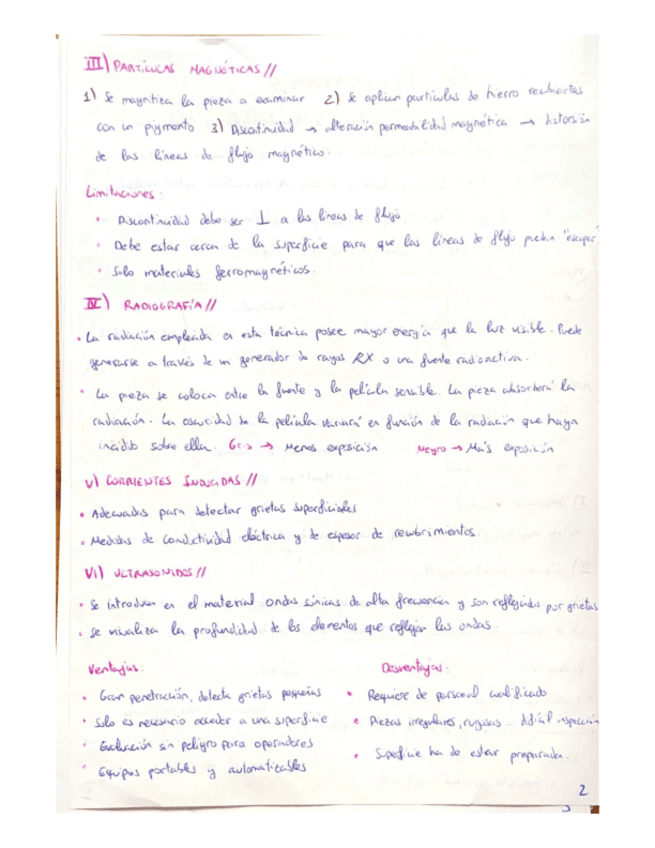 III) PARTÍCULAS MAGNÉTICAS //
1) Se magnetiza la pieza a examinar 2) Se aplican partículas de hierro recubiertas
con un pigmento 3) Discontinuidad → alteración permeabilidad magnética → distorsión
de las líneas de flujo magnético.
Limitaciones:
• Discontinuidad debe ser ⊥ a las líneas de flujo
• Debe estar cerca de la superficie para que las líneas de flujo puedan "escapar"
• Solo materiales ferromagnéticos.
IV) RADIOGRAFÍA //
• La radiación empleada en esta técnica posee mayor energía que la luz visible. Puede
generarse a través de un generador de rayos RX o una fuente radioactiva.
• La pieza se coloca entre la fuente y la película sensible. La pieza absorberá la
radiación. La oscuridad de la película variará en función de la radiación que haya
incidido sobre ella. Gris → Menos exposición Negro → Más exposición
V) CORRIENTES INDUCIDAS //
• Adecuadas para detectar grietas superficiales
• Medidas de conductividad eléctrica y de espesor de recubrimientos.
VI) ULTRASONIDOS //
• Se introducen en el material ondas sónicas de alta frecuencia y son reflejadas por grietas
• Se visualiza la profundidad de los elementos que reflejan las ondas.
Ventajas: Desventajas:
• Gran penetración, detecta grietas pequeñas • Requiere de personal cualificado
• Solo es necesario acceder a una superficie • Piezas irregulares, rugosas... difícil inspección
• Evaluación sin peligro para operadores • Superficie ha de estar preparada.
• Equipos portables y automatizables
2